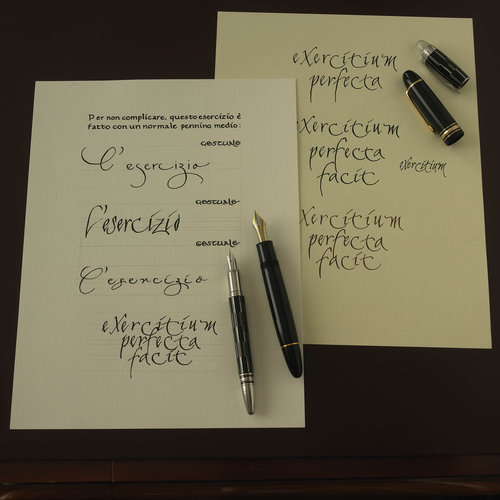 Per non complicare, questo esercizio è
fatto con un normale pennino medio:
GESTUALE
l'esercizio
GESTUALE
l'esercizio
GESTUALE
l'esercizio
exercitium
perfecta
facit
exercitium
perfecta
exercitium
perfecta
facit
exercitium
exercitium
perfecta
facit